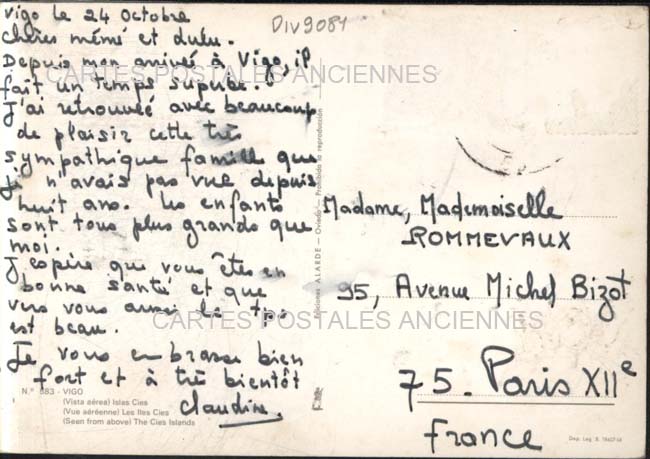 Vigo le 24 Octobre
Chères mémé et dulu.
Depuis mon arrivée à Vigo, il
fait un temps superbe.
J'ai retrouvé avec beaucoup
de plaisir cette très
sympathique famille que
je n'avais pas vue depuis
huit ans. Les enfants
sont tous plus grands que
moi.
J'espère que vous êtes en
bonne santé et que
vers vous aussi le tps
est beau.
Je vous embrasse bien
fort et à très bientôt
Claudine.
N.º 683 - VIGO
(Vista aérea) Islas Cies
(Vue aérienne) Les Iles Cies
(Seen from above) The Cies Islands
Ediciones ALARDE — Oviedo — Prohibida la reproducción
DIV9081
Madame, Mademoiselle
ROMMEVAUX
95, Avenue Michel Bizot
75. Paris XIIe
France
Dep. Leg. B.
CARTES POSTALES ANCIENNES
CARTES POSTALES ANCIENNES